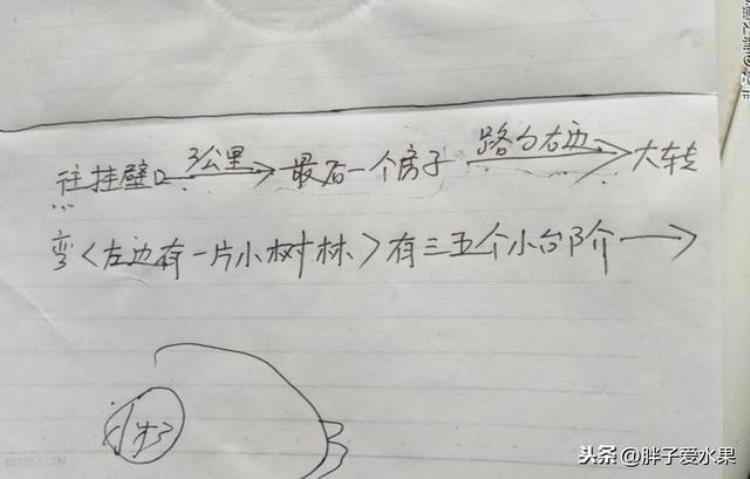 往挂壁口 3公里→ 最后一个房子 路的右边→ 大转
弯<左边有一片小树林>有三五个小台阶→
小树
头条@胖子爱水果